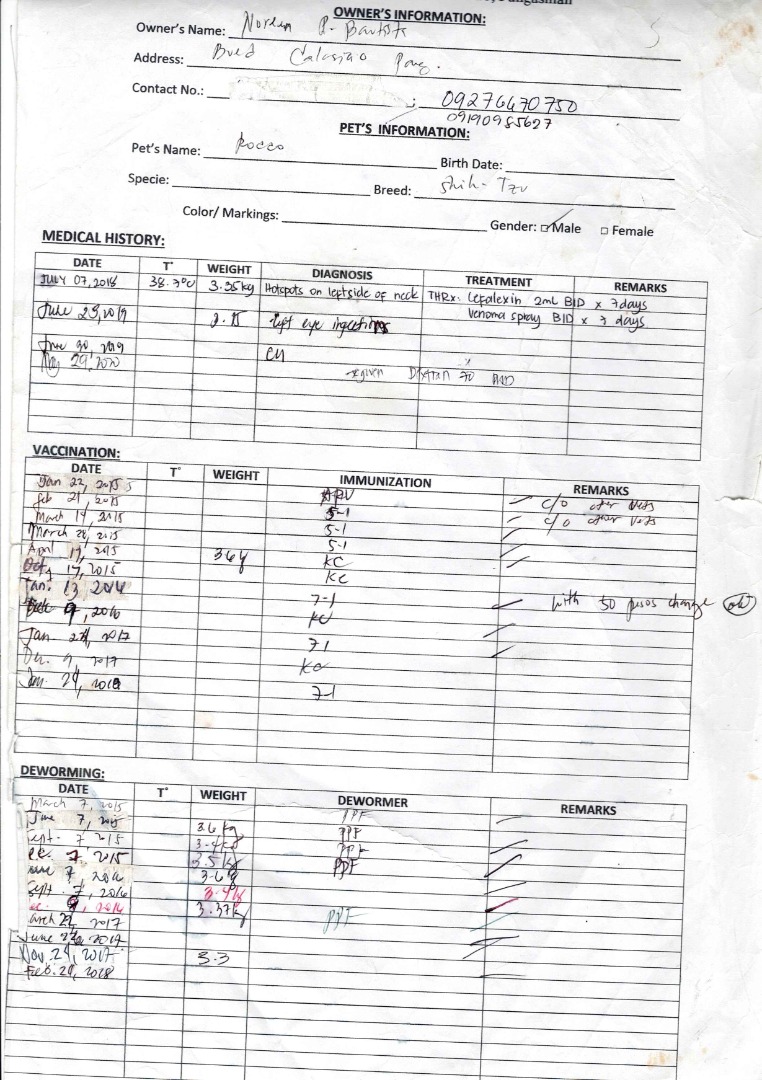 OWNER'S INFORMATION:
Owner's Name: Noreen P. Bautista
Address: Bued Calasiao Pang.
Contact No.: 09276470750
09190985627
PET'S INFORMATION:
Pet's Name: Rocco
Birth Date:
Specie:
Breed: Shih-Tzu
Color/ Markings:
Gender: Male Female
MEDICAL HISTORY:
DATE T° WEIGHT DIAGNOSIS TREATMENT REMARKS
JULY 07, 2018 38.7°C 3.35kg Hotspots on leftside of neck THRx: Cefalexin 2mL BID x 7days
Venoma spray BID x 7 days
June 23, 2019 left eye
June 30, 2019
29, 2020
given 70
VACCINATION:
DATE T° WEIGHT IMMUNIZATION REMARKS
Jan 22, 2015
Feb 21, 2015 5-1 c/o other vets
March 14, 2015 5-1 c/o other vets
March 28, 2015 5-1
April 17, 2015 KC
Oct 17, 2015 KC
Jan. 13, 2016 7-1 with 50 pesos change
9, 2016 KC
Jan. 2017 71
Dec. 9, 2017 KC
Jan. 29, 2018 7-1
DEWORMING:
DATE T° WEIGHT DEWORMER REMARKS
March 7, 2015 PPF
June 7, 2015 3.6 kg PPF
Sept. 7 2015 3.4kg PPF
7, 2015 3.5kg PPF
June 7, 2016 3.6
Sept. 7, 2016 3.4kg
9, 2016 3.37kg
2017 PPF
June 2017
Nov. 29, 2017 3.3
Feb. 29, 2018